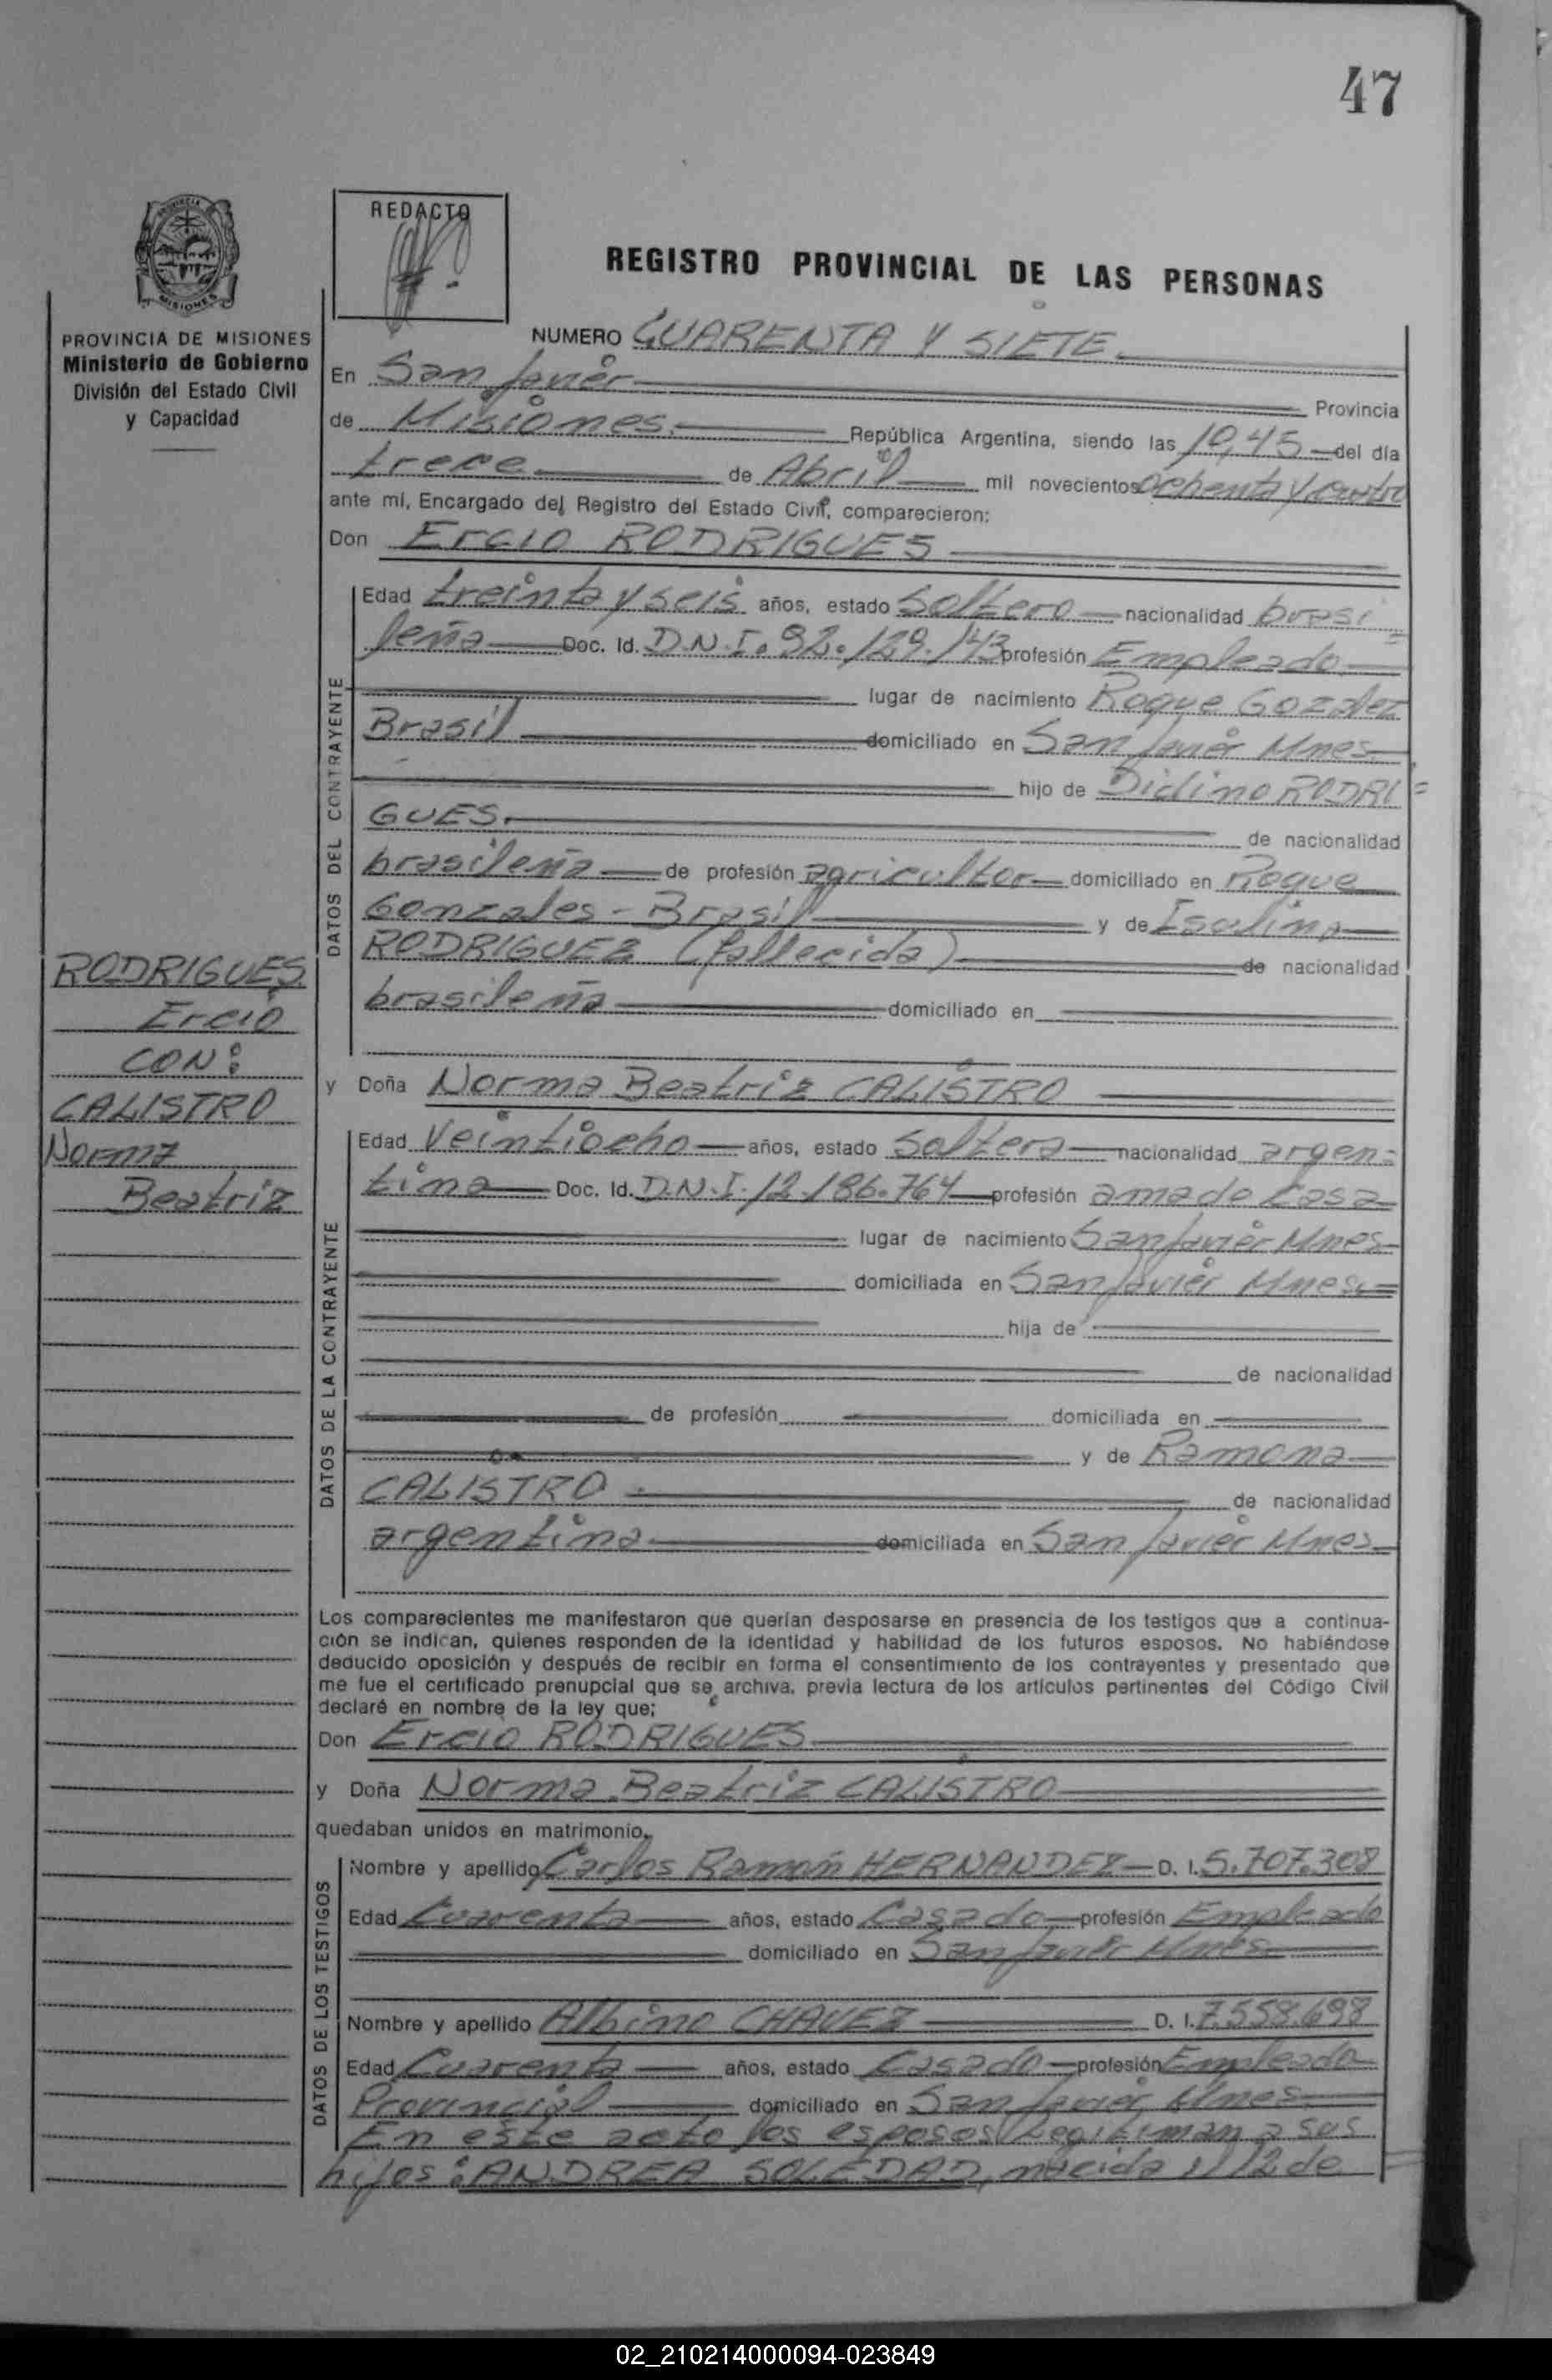 47
REDACTO
REGISTRO PROVINCIAL DE LAS PERSONAS
PROVINCIA DE MISIONES
Ministerio de Gobierno
División del Estado Civil
y Capacidad
NUMERO CUARENTA Y SIETE
En San Javier Provincia
de Misiones. República Argentina, siendo las 10,45 del día
trece de Abril mil novecientos ochenta y cuatro
ante mí, Encargado del Registro del Estado Civil, comparecieron:
Don Ercio RODRIGUES
DATOS DEL CONTRAYENTE
Edad treinta y seis años, estado Soltero nacionalidad brasi=
leña Doc. Id. D.N.I. 92.129.143 profesión Empleado
lugar de nacimiento Roque Gozalez
Brasil domiciliado en San Javier Mnes.
hijo de Didimo RODRI=
GUES. de nacionalidad
brasileña de profesión agricultor domiciliado en Roque
Gonzales - Brasil y de
RODRIGUEZ (fallecida) de nacionalidad
brasileña domiciliado en
RODRIGUES
Ercio
CON:
CALISTRO
Norma
Beatriz
y Doña Norma Beatriz CALISTRO
DATOS DE LA CONTRAYENTE
Edad Veintiocho años, estado Soltera nacionalidad argen=
tina Doc. Id. D.N.I. 12.186.764 profesión ama de casa
lugar de nacimiento San Javier Mnes
domiciliada en San Javier Mnes.
hija de
de nacionalidad
de profesión domiciliada en
y de Ramona
CALISTRO . de nacionalidad
argentina domiciliada en San Javier Mnes
Los comparecientes me manifestaron que querían desposarse en presencia de los testigos que a continua-
ción se indican, quienes responden de la identidad y habilidad de los futuros esposos. No habiéndose
deducido oposición y después de recibir en forma el consentimiento de los contrayentes y presentado que
me fue el certificado prenupcial que se archiva, previa lectura de los artículos pertinentes del Código Civil
declaré en nombre de la ley que;
Don Ercio RODRIGUES
y Doña Norma Beatriz CALISTRO
quedaban unidos en matrimonio.
DATOS DE LOS TESTIGOS
Nombre y apellido Carlos Ramón HERNANDEZ D. I. 5.707.308
Edad Cuarenta años, estado Casado profesión Empleado
domiciliado en San Javier Mnes
Nombre y apellido Albino CHAVEZ D. I. 7.558.698
Edad Cuarenta años, estado Casado profesión Empleado
Provincial domiciliado en San Javier Mnes.
En este acto los esposos legitiman a sus
hijos: ANDREA SOLEDAD, nacida 12 de
02_210214000094-023849